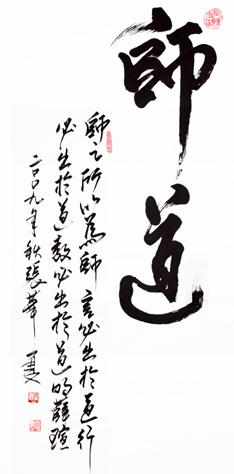 師道
師之所以為師 言必出於道行
必出於道教必出於道的薪瑄
二〇〇九年秋張華